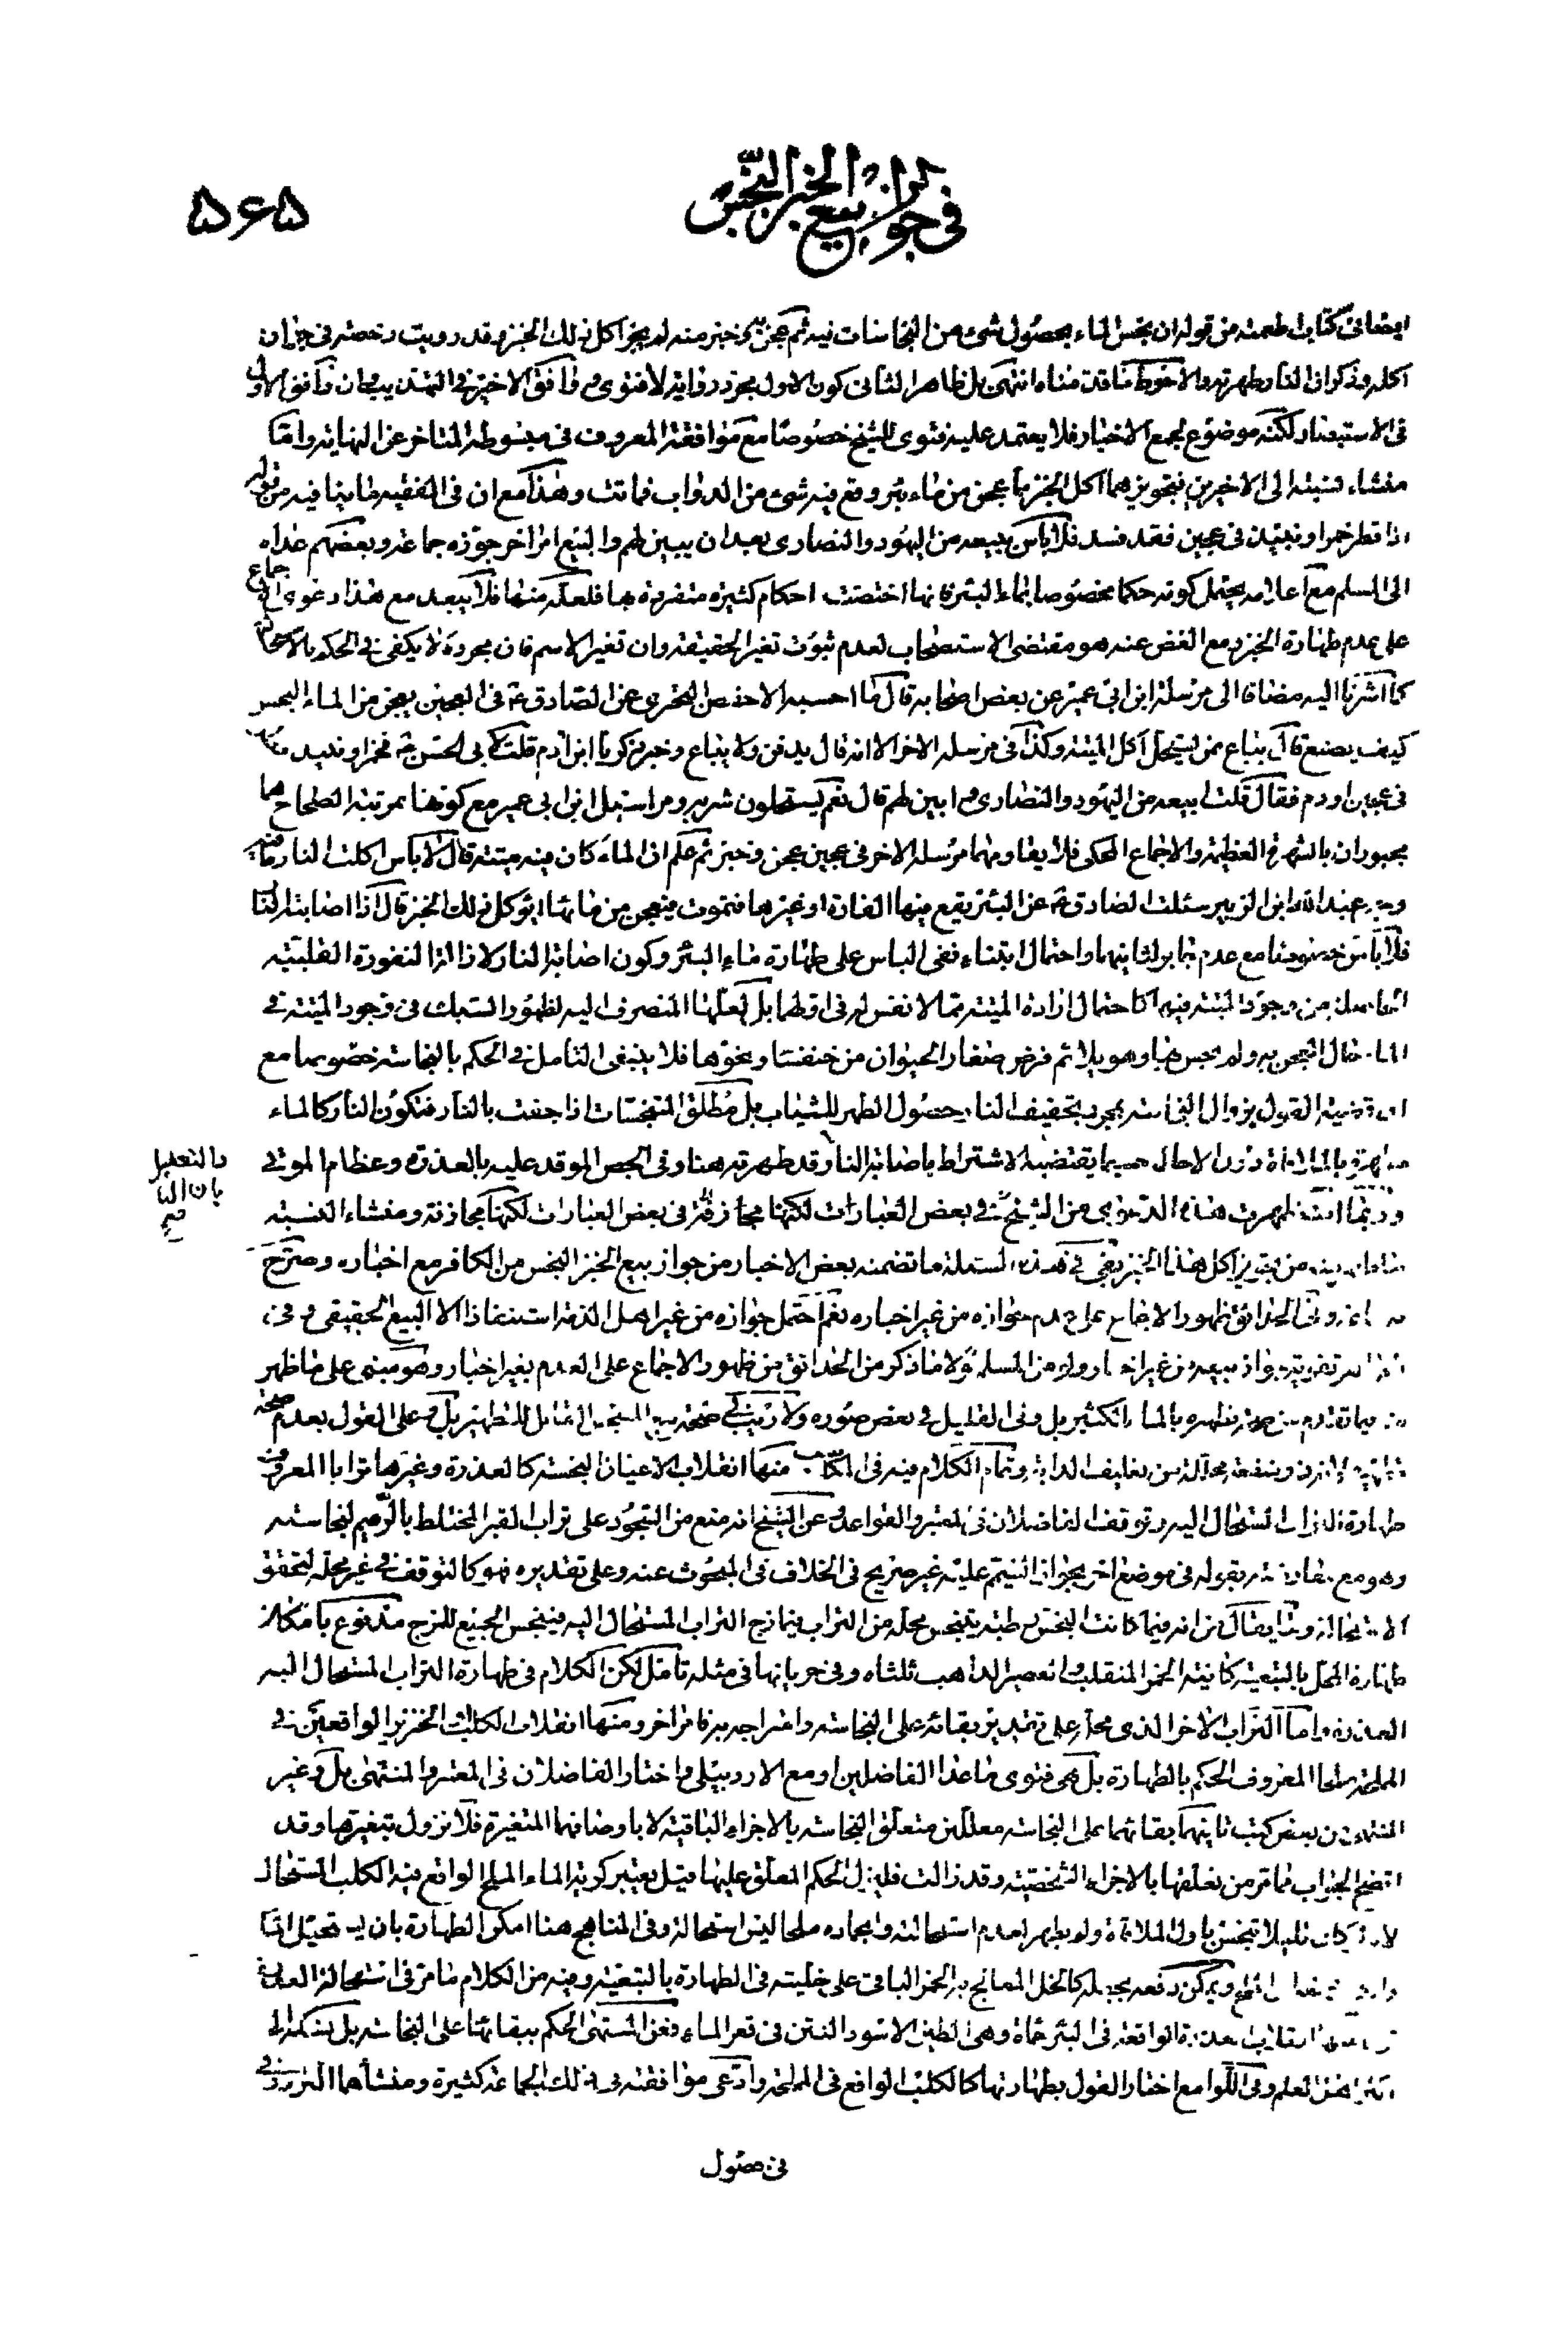 في جواز بيع الخبز النجس
۵۶۵
ايضا في كتاب طعمته من قوله ان نجس الماء بحصول شيء من النجاسات فيه ثم عجن به و خبز منه لم يجز اكل ذلك الخبز و قد رويت رخصة في جواز
اكله و ذكر ان النار طهرته و الاحوط ما قدمناه انتهى بل ظاهر الثاني كون الاول مجرد رواية لا فتوى و وافق الاخير في التهذيب كان وافق الاول
في الاستبصار لكنه موضوع لجمع الاخبار فلا يعتمد عليه فتوى للشيخ خصوصا مع موافقته المعروف في مبسوطه المتاخر عن النهاية و اما
منشاء نسبته الى الاخيرين فتجويزهما اكل الخبز ما عجن من ماء بئر وقع فيه شيء من الدواب فماتت و هذا مع ان في الفقيه ما ينافيه من قوله
اذا قطر خمر او نبيذ في عجين فقد فسد فلا باس ببيعه من اليهود و النصارى بعد ان يبين لهم و البيع امر اخر جوزه جماعة و بعضهم عداه
الى المسلم مع اعلامه يحتمل كونه حكما مخصوصا بماء البئر فانها اختصت باحكام كثيرة متفردة بها فلعله منها فلا يبعد مع هذا دعوى الاجماع
على عدم طهارة الخبز و مع الغض عنه هو مقتضى الاستصحاب لعدم ثبوت تغير الحقيقة و ان تغير الاسم فان مجرده لا يكفي في الحكم بالاستحالة
كما اشرنا اليه مضافا الى مرسلة ابن ابي عمير عن بعض اصحابه قال ما احسبه الا حفص البختري عن الصادق ع في العجين يعجن من الماء النجس
كيف يصنع قال يباع ممن يستحل اكل الميتة و كذا في مرسله الاخر الا انه قال يدفن و لا يباع و خبر زكريا ابن ادم قلت لابي الحسن ع فخمر او نبيذ
في عجين او دم فقال قلت ابيعه من اليهود و النصارى و ابين لهم قال نعم يستحلون شربه و مراسيل ابن ابي عمير مع كونها بمرتبة الصحاح هما
مجبوران بالشهرة العظيمة و الاجماع المحكي فلا يقاومهما مرسله الاخر في عجين عجن و خبز ثم علم ان الماء كان فيه ميتة قال لا باس اكلت النار ما فيه
و خبر عبد الله ابن الزبير سئلت الصادق ع عن البئر يقع فيها الفارة او غيرها فتموت فيعجن من مائها ايؤكل ذلك الخبز قال اذا اصابته النار
فلا باس خصوصا مع عدم جابر لهما فيهما و احتمال ابتناء نفي الباس على طهارة ماء البئر و كون اصابة النار لازالة النفورة القلبية
من وجود الميتة فيه كاحتمال ارادة الميتة مما لا نفس له في اولهما بل لعلها المنصرف اليه لظهور السبك في وجود الميتة في
الماء حال العجن به و لم يحس بها و هو يلائم فرض صغار الحيوان من خنفساء و نحوها فلا ينبغي التامل في الحكم بالنجاسة خصوصا مع
ان قضية القول بزوال النجاسة بمجرد تجفيف النار حصول الطهر للثياب بل مطلق المتنجسات اذا جفت بالنار فتكون النار كالماء
مطهرة بالملاقاة دون الاحالة حسبما يقتضيه الاشتراط باصابة النار و قد طهرته هنا و في الجص الموقد عليه بالعذرة و عظام الموتى
و التعليل بان النار صح
و ربما ظهرت هذه الدعوى من الشيخ في بعض العبارات لكنها مجازفة في بعض العبارات لكنها مجازفة و منشاء النسبة
من تجويز اكل هذا الخبز بقي في هذه المسئلة ما تضمنه بعض الاخبار من جواز بيع الخبز النجس من الكافر مع اخباره و صرح
به و في الحدائق ظهور الاجماع على عدم جوازه من غير اخباره نعم احتمل جوازه من غير اهل الذمة استنقاذا لا البيع الحقيقي و في
جواز بيعه من غير اخبار و لو من المسلم و لا ما ذكر من الحدائق من ظهور الاجماع على العدم بغير اخبار و هو مبني على ما ظهر
فيما تقدم من تطهره بالماء الكثير بل و في القليل في بعض صوره و لا ريب في صحة بيع المتنجس القابل للتطهير بل و على القول بعدم صحة
و منفعة محللة من تعليف الدابة و تمام الكلام فيه في المكاسب منها انقلاب الاعيان النجسة كالعذرة و غيرها ترابا المعروف فيه
طهارة التراب المستحال اليه و توقف الفاضلان في المعتبر و القواعد و عن الشيخ انه منع من السجود على تراب القبر المختلط بالرميم لنجاسته
و هو مع بقوله في موضع اخر بجواز التيمم عليه غير صريح في الخلاف في المبحوث عنه و على تقديره فهو كالتوقف في غير محله لتحقق
الاستحالة و ما يقال من انه فيما كانت النجس رطبة يتنجس محله من التراب فيمازج التراب المستحال اليه فينجس الجميع للمزج مدفوع بامكان
طهارة المحل بالتبعية كانية الخمر المنقلب و العصير الذاهب ثلثاه و في جريانها في مثله تامل لكن الكلام في طهارة التراب المستحال اليه
العذرة و اما التراب الاخر الذي محله على تقدير بقائه على النجاسة و امتزاجه به فامر اخر و منها انقلاب الكلب و الخنزير الواقعين في
المملحة ملحا المعروف الحكم بالطهارة بل هي فتوى ما عدا الفاضلين او مع الاردبيلي و اختار الفاضلان في المعتبر و المنتهى بل و غير
المنتهى من بعض كتب ثانيهما بقائهما على النجاسة معللين متعلق النجاسة بالاجزاء الباقية لا باوصافها المتغيرة فلا تزول بتغيرها و قد
اتضح الجواب مما مر من تعلقها بالاجزاء الشخصية و قد زالت فليزل الحكم المعلق عليها قيل يعتبر كرية الماء المملح الواقع فيه الكلب المستحال
لانه لو كان قليلا تنجس باول الملاقاة و لم يطهر لعدم استحالته و انجماده ملحا ليس استحالة و في المناهج هنا امكن الطهارة بان يستحيل
و يمكن دفعه بجعله كالخل المعالج به الخمر الباقي على خليته في الطهارة بالتبعية و فيه من الكلام ما مر في استحالة العذرة
انقلاب العذرة الواقعة في البئر حماة و هي الطين الاسود المنتن في قعر الماء فعن المنتهى الحكم ببقائها على النجاسة بل
العلم و في اللوامع اختار القول بطهارتها كالكلب الواقع في المملحة و ادعى موافقته في ذلك الجماعة كثيرة و منشاهما التردد في
في حصول